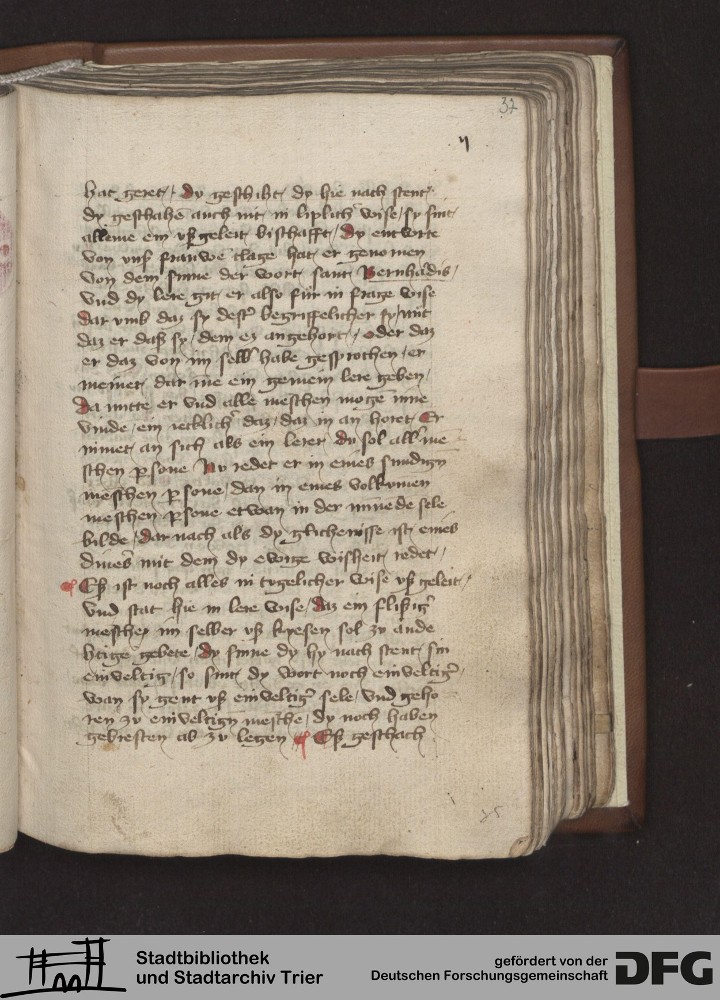 32
hat geret / Dy geschiht dy hie nach stent
dy geschahē auch nit in liplich' wise / sy sint
alleine ein vßgeleit bischafft / Dy entworte
von vnß frauwē clage hat er genomen
von dem sinne der wort sant Bernhadis /
Vnd dy lere git er also für in frage wise
Dar vmb daz sy dest' begriffelicher sy / nüt
daz er daß sy / dem ez angehort / oder daz
er daz von im selb' habe gesprochen / er
meinet dar ine ein gemein lere geben /
Da mitte er vnd alle meschen moge inne
vinde / ein iecklich' daz / daz in an horet Er
nimet an sich als ein lerer dy sol all' me
schen psone Nv redet er in eines sundign
meschen psone / dan in eines volkomen
meschen psone etwan in der minēde sele
bilde / Dar nach als dy glichenisse ist eines
dines' mit dem dy ewige wisheit redet /
Eß ist noch alles in tvgelicher wise vß geleit /
Vnd stat hie in lere wise / Daz ein flißig'
mesche im selber vß kyesen sol zv ande
htige gebete / Dy sinne dy hy nach stent sin
einveltig / so sint dy wort noch einveltig' /
wan sy gent vß einveltig' sele / Vnd geho
ren zv einveltign mesche / dy noch haben
gebresten ab zv legen Eß geschach
Stadtbibliothek
und Stadtarchiv Trier
gefördert von der
Deutschen Forschungsgemeinschaft
DFG